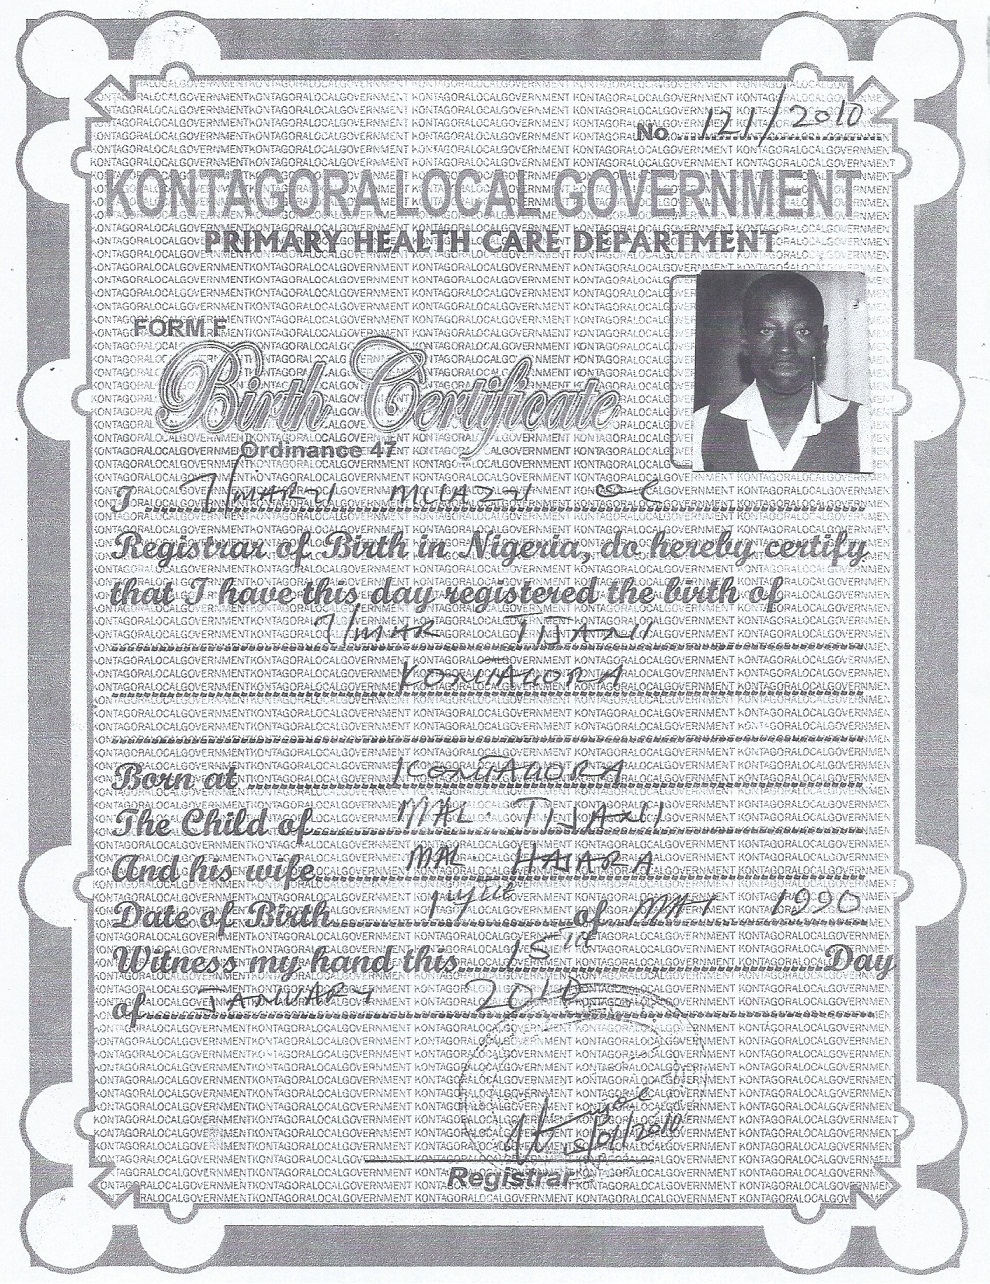 No. 121/2010
KONTAGORA LOCAL GOVERNMENT
PRIMARY HEALTH CARE DEPARTMENT
FORM F
Birth Certificate
Ordinance 47
I UMARU MUAZU
Registrar of Birth in Nigeria, do hereby certify
that I have this day registered the birth of
UMAR TIJANI
KONTAGORA
Born at KONTAGORA
The Child of MAL. TIJANI
And his wife MAL. HAJARA
Date of Birth of MAY 1990
Witness my hand this 15th Day
of JANUARY 2010
15/01/2010
Registrar